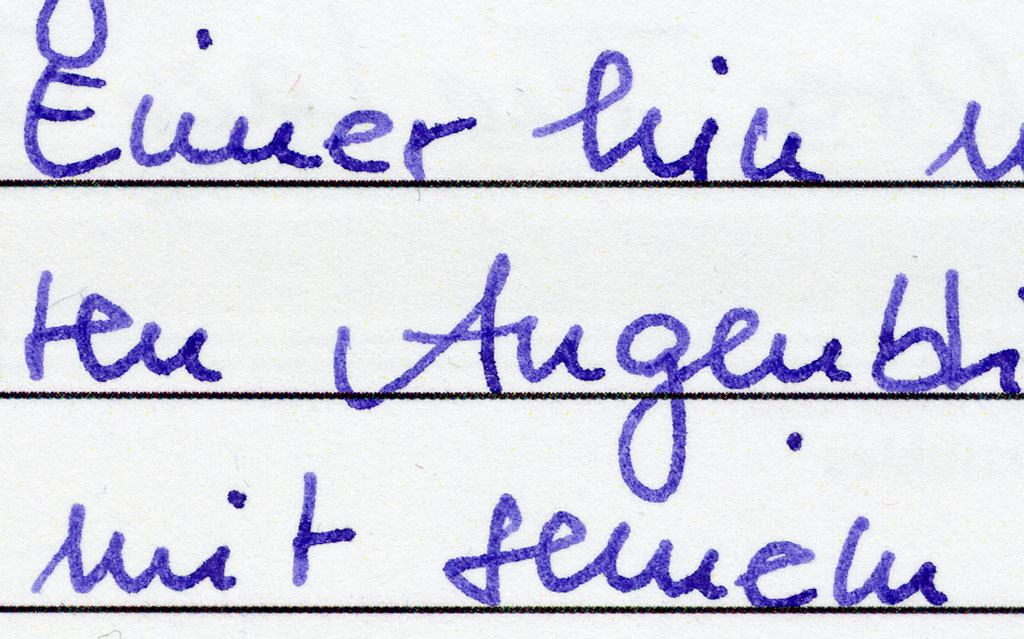 Eimer hin
ten Augenbli
mit seinem